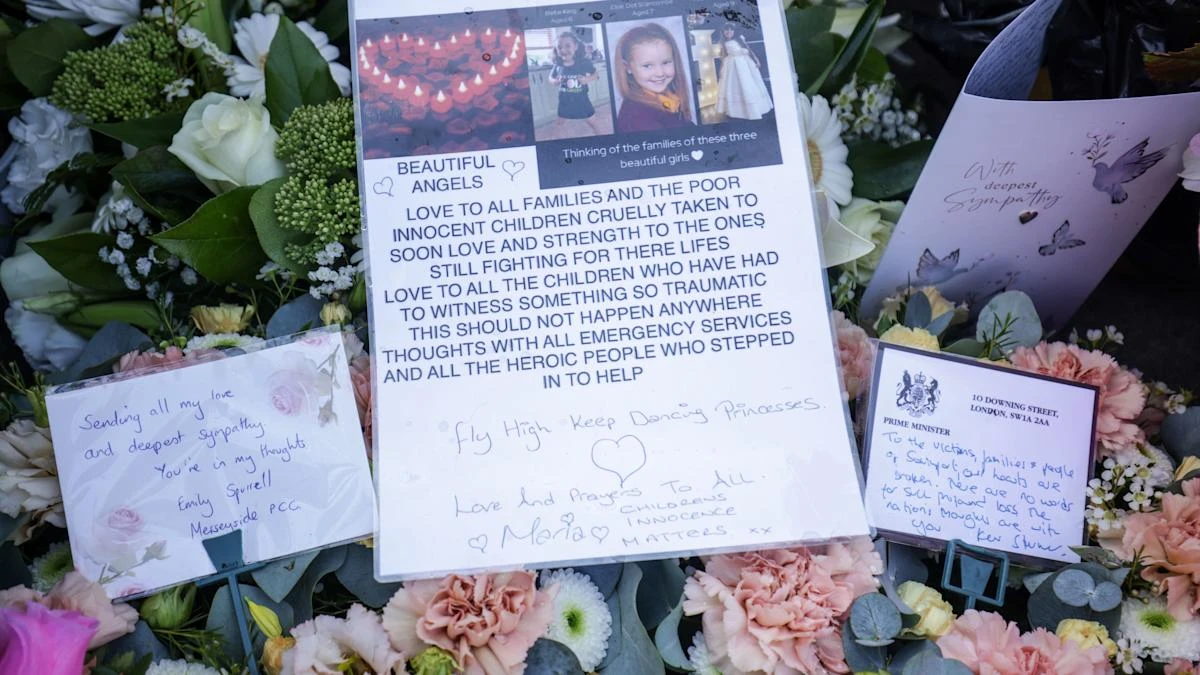 Aged 6
Aged 7
Aged 9
Thinking of the families of these three
beautiful girls
BEAUTIFUL
ANGELS
LOVE TO ALL FAMILIES AND THE POOR
INNOCENT CHILDREN CRUELLY TAKEN TO
SOON LOVE AND STRENGTH TO THE ONES
STILL FIGHTING FOR THERE LIFES
LOVE TO ALL THE CHILDREN WHO HAVE HAD
TO WITNESS SOMETHING SO TRAUMATIC
THIS SHOULD NOT HAPPEN ANYWHERE
THOUGHTS WITH ALL EMERGENCY SERVICES
AND ALL THE HEROIC PEOPLE WHO STEPPED
IN TO HELP
Fly High Keep Dancing Princesses.
Love And Prayers To All.
Maria
CHILDRENS
INNOCENCE
MATTERS xx
Sending all my love
and deepest sympathy.
You're in my thoughts
Emily Spurrell
Merseyside PCC.
With
deepest
Sympathy
10 DOWNING STREET,
LONDON, SW1A 2AA
PRIME MINISTER
To the victims, families & people
of Southport, our hearts are
broken. There are no words
for such profound loss. The
nation's thoughts are with
you Keir Starmer